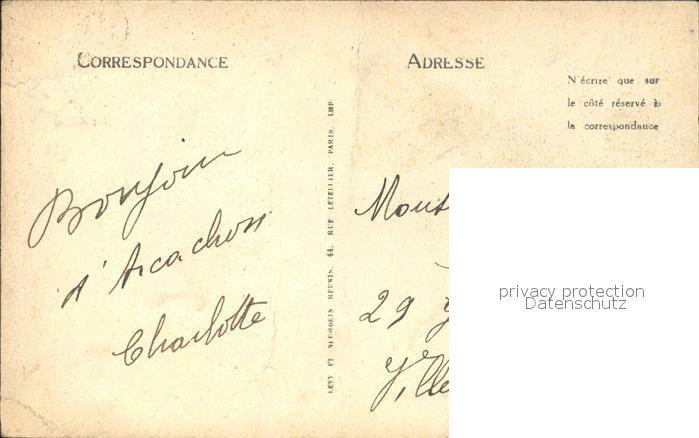 CORRESPONDANCE
ADRESSE
N'écrire que sur
le côté réservé à
la correspondance
Bonjour
d'Arcachon
Charlotte
LEVY ET NEURDEIN REUNIS, 44, RUE LETELLIER, PARIS. IMP
29
privacy protection
Datenschutz